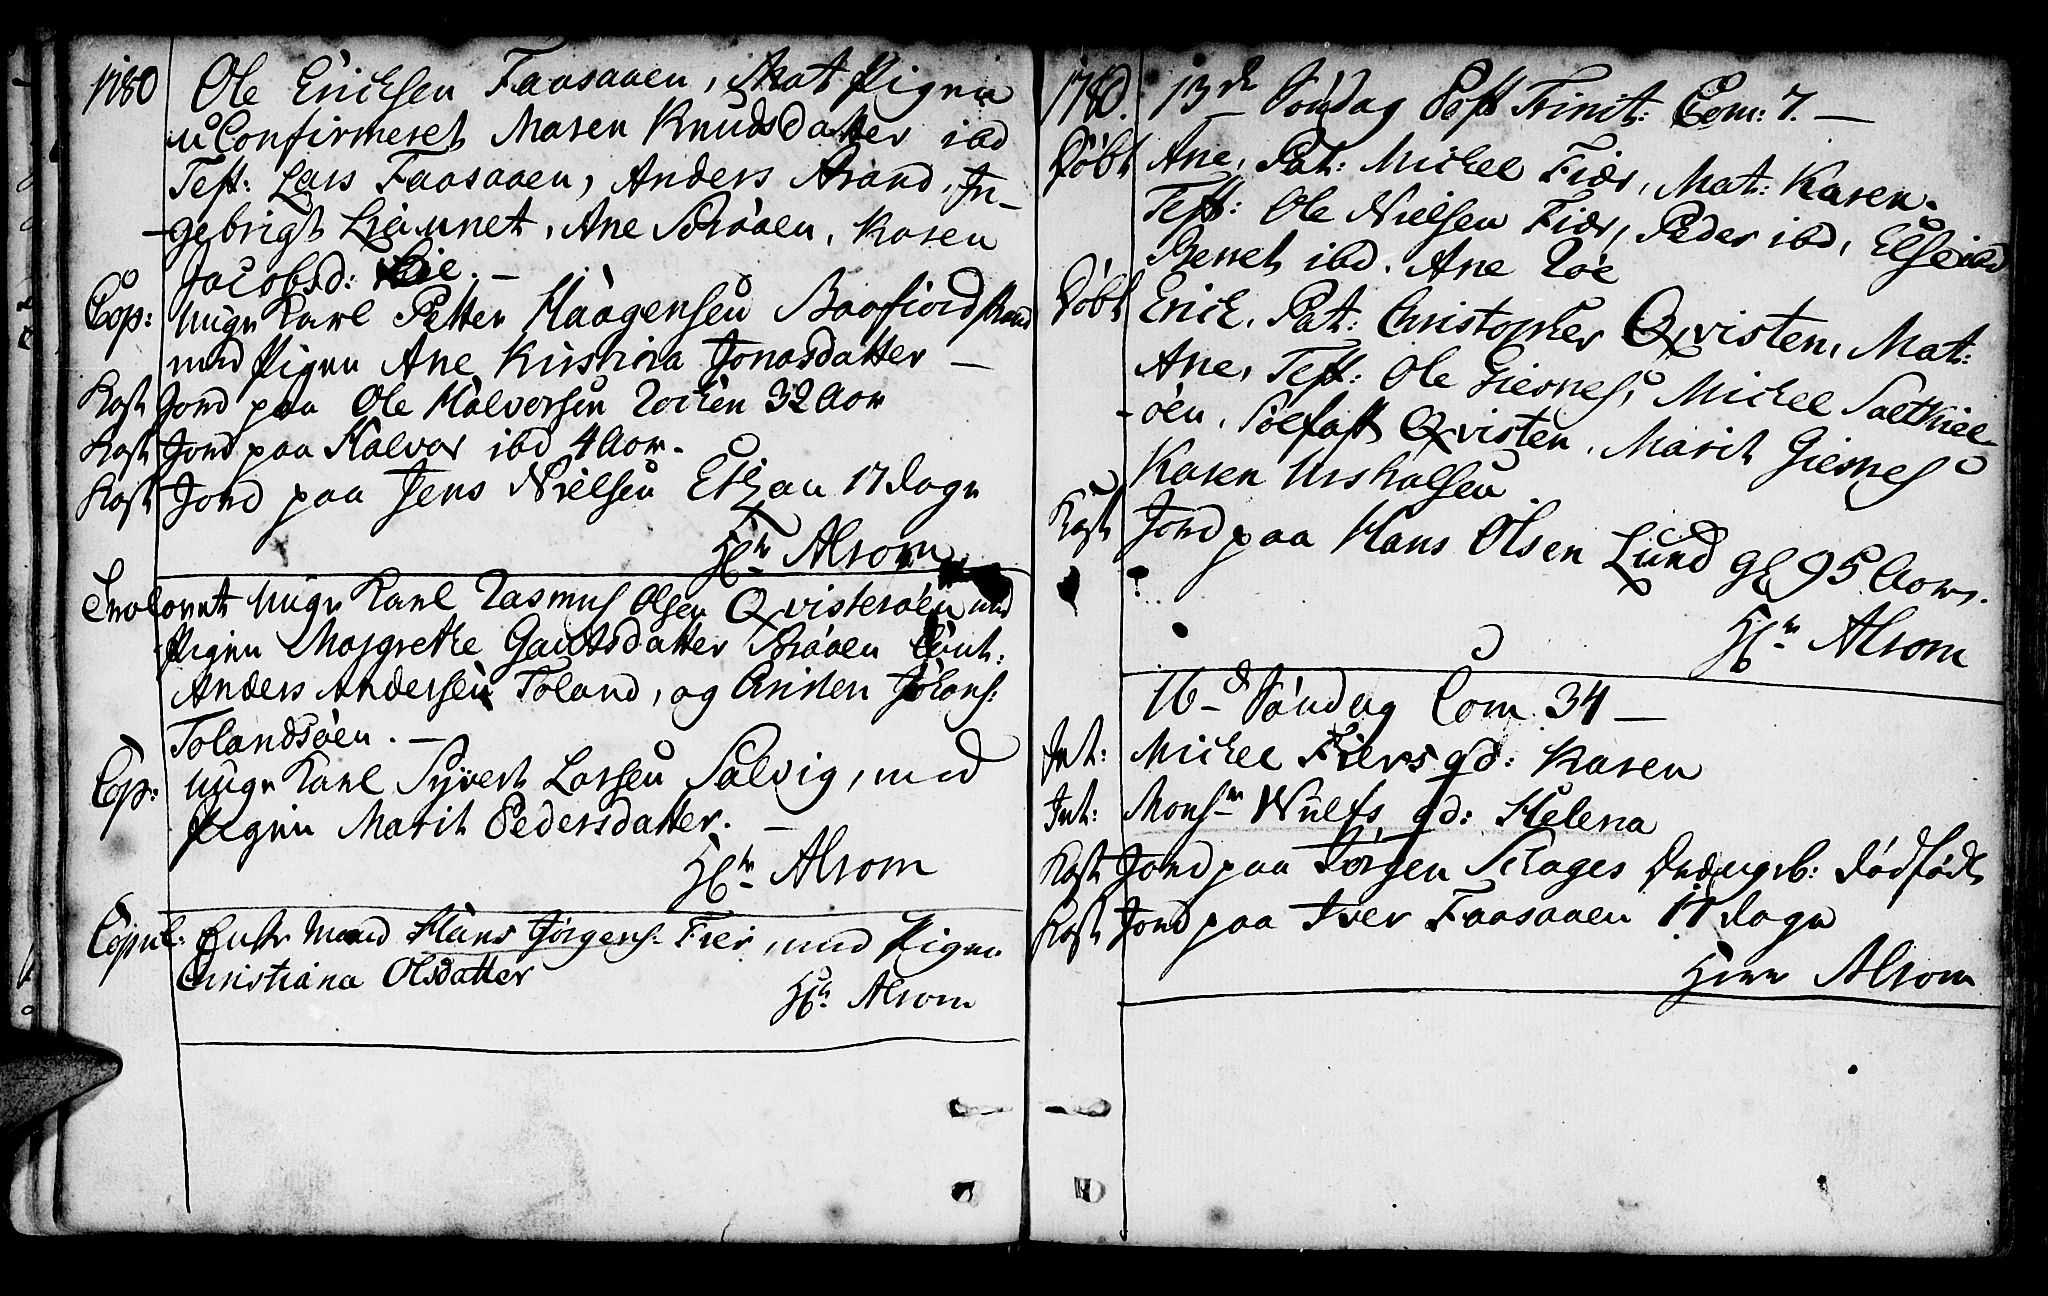 1780
Ole Erichsen Faasaaen, Mat Pigen
u Confirmeret Maren Knudsdatter ibd
Test: Lars Faasaaen, Anders Strand, In-
gebrigt Liaunet, Ane Stråaen, Karen
Jacobsd: Lie. —
Cop: Unge Karl Petter Haagensen Baafiord strand
med Pigen Ane Kirstina Jonasdatter —
Kast Jord paa Ole Halvorsen 32 Aar
Kast Jord paa Halvor ibd 4 Aar.
Kast Jord paa Jens Nielsen 17 dage
Hr Alrom
Trolovet Unge Karl Rasmus Olsen Qvisteröen med
Pigen Margrethe Gautsdatter
Anders Andersen Toland, og
Tolandsöen. —
Cop: Unge Karl Syvert Larsen Salvig, med
Pigen Marit Pedersdatter. —
Hr Alrom
Copul: Enke Mand Hans Jörgens: Fier, med Pigen
Christiana Olsdatter
Hr Alrom
1780. 13de Söndag Post Trinit: Com: 7. —
Döbt Ane, Pat: Michel Fier, Mat: Karen.
Test: Ole Nielsen Fier, Peder ibd, Else ibd
Beret ibd. Ane Röe
Döbt Erich, Pat: Christopher Qvisten, Mat:
Ane, Test: Ole Giesnes, Michel Saltkiel-
öen, Solfast Qvisten, Marit Giesnes
Karen
Kast Jord paa Hans Olsen Lund gl 95 Aar.
Hr Alrom
16de Söndag Com 34 —
Int: Michel Fiers qd: Karen
Int: Monsr Wulfs qd: Helena
Kast Jord paa Jörgen Schages dödfödt
Kast Jord paa Iver Faasaaen 17 dage
Herr Alrom